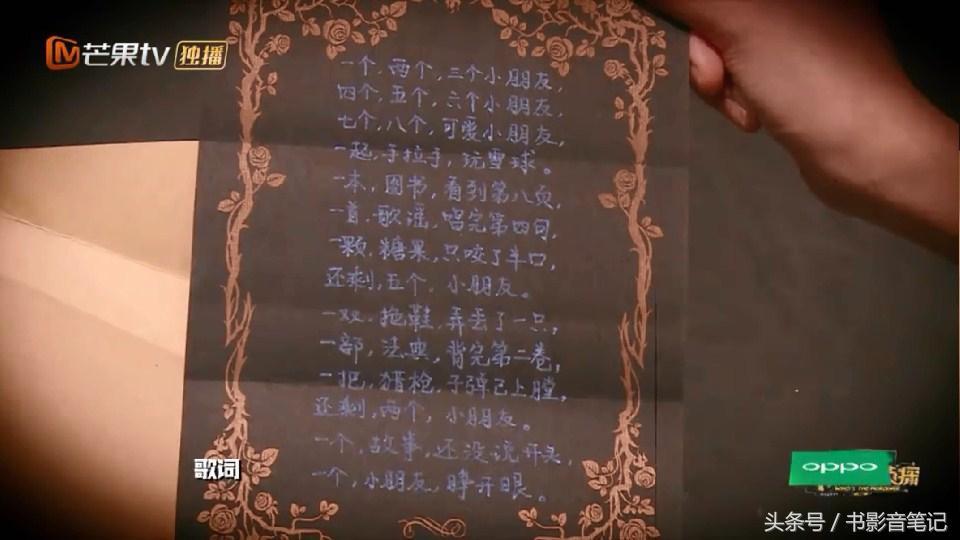 芒果tv 独播
一个，两个，三个小朋友，
四个，五个，六个小朋友，
七个，八个，可爱小朋友，
一起，手拉手，玩雪球。
一本，图书，看到第八页，
一首，歌谣，唱完第四句，
一颗，糖果，只咬了半口，
还剩，五个，小朋友。
一双，拖鞋，弄丢了一只，
一部，法典，背完第二卷，
一把，猎枪，子弹已上膛，
还剩，两个，小朋友。
一个，故事，还没说开头，
一个，小朋友，睁开眼。
歌词
oppo
侦探
WHO'S THE MURDERER
头条号 / 书影音笔记